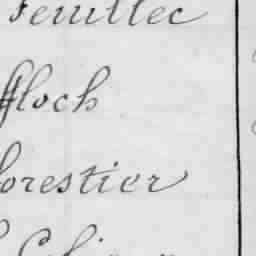 Feuillec
ffloch
orestier